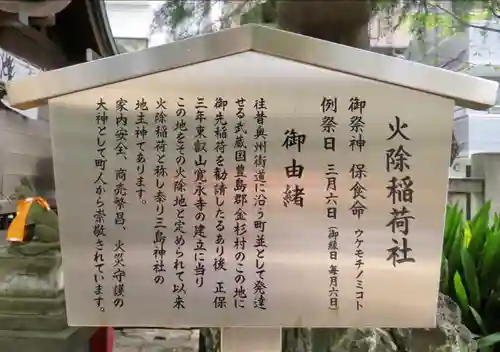 火除稲荷社
御祭神 保食命 ウケモチノミコト
例祭日 三月六日(御縁日 毎月六日)
御由緒
往昔奥州街道に沿う町並として発達
せる武蔵国豊島郡金杉村のこの地に
御先稲荷を勧請したるあり後 正保
三年東叡山寛永寺の建立に当り
この地をその火除地と定められて以来
火除稲荷と称し奉り三島神社の
地主神であります。
家内安全、商売繁昌、火災守護の
大神として町人から崇敬されています。